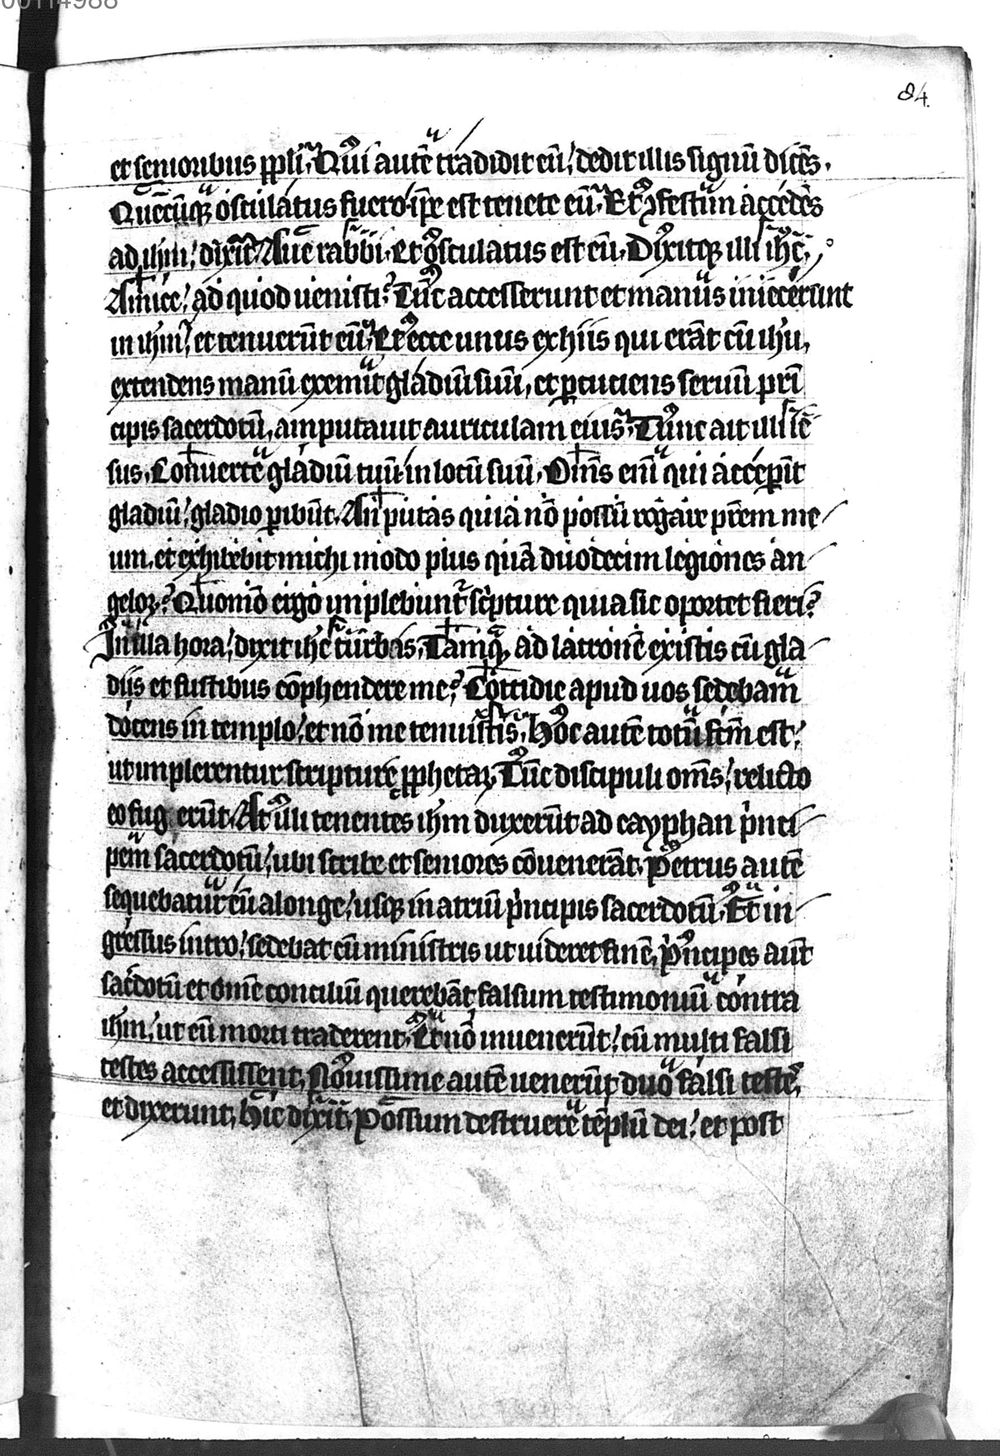 00114988
84.
et senioribus ppl̅i. Qui aute̅ tradidit eu̅, dedit illis signu̅ dice̅s.
Que̅cu̅q̨ osculatus fuero ip̅e est tenete eu̅. Et ꝯfestim accede̅s
ad ihm̅, dixit. Aue rabbi. Et osculatus est eu̅. Dixitq̨ illi ihc̅,
Amice, ad quod uenisti? Tu̅c accesserunt et manus iniecerunt
in ihm̅, et tenueru̅t eu̅. Et ecce unus ex hiis qui era̅t cu̅ ihu̅,
extendens manu̅ exemit gladiu̅ suu̅, et ꝑcuciens seruu̅ pri̅
cipis sacerdotu̅, amputauit auriculam eius. Tunc ait illi ie
sus, Conuerte gladiu̅ tuu̅ in locu̅ suu̅. Om̅s eni̅ qui acceꝑi̅t
gladiu̅, gladio ꝑibu̅t. An putas quia no̅ possu̅ rogare pr̅em me
um, et exhibebit michi modo plus qua̅ duodecim legiones an
geloꝝ? Quomo̅ ergo implebuntr̅ sc̅pture quia sic oportet fieri?
In illa hora, dixit ihc̅ turbis, Tamq̅ ad latrone̅ existis cu̅ gla
diis et fustibus co̅phendere me? Cottidie apud uos sedebam
docens in templo, et no̅ me tenuistis. Hoc aute̅ totu̅ fcm̅ est,
ut implerentur scripture ꝓphetaꝝ. Tu̅c discipuli om̅s, relicto
eo fugeru̅t. At illi tenentes ihm̅ duxeru̅t ad cayphan p̍nci
pem sacerdotu̅, ubi scribe et seniores co̅uenera̅t. Petrus aute̅
sequebatur eu̅ alonge, usq̨ in atriu̅ p̍ncipis sacerdotu̅. Et in
gressus intro, sedebat cu̅ ministris ut uideret fine̅. P̍ncipes aut̅
sac̅dotu̅ et om̅e conciliu̅ quereba̅t falsum testimoniu̅ contra
ihm̅, ut eu̅ morti traderent. Et no̅ inueneru̅t, cu̅ multi falsi
testes accessissent. Nouissime aute̅ ueneru̅t duo falsi teste̅,
et dixerunt, Hic dixit, Possum destruere te̅plu̅ dei, et post